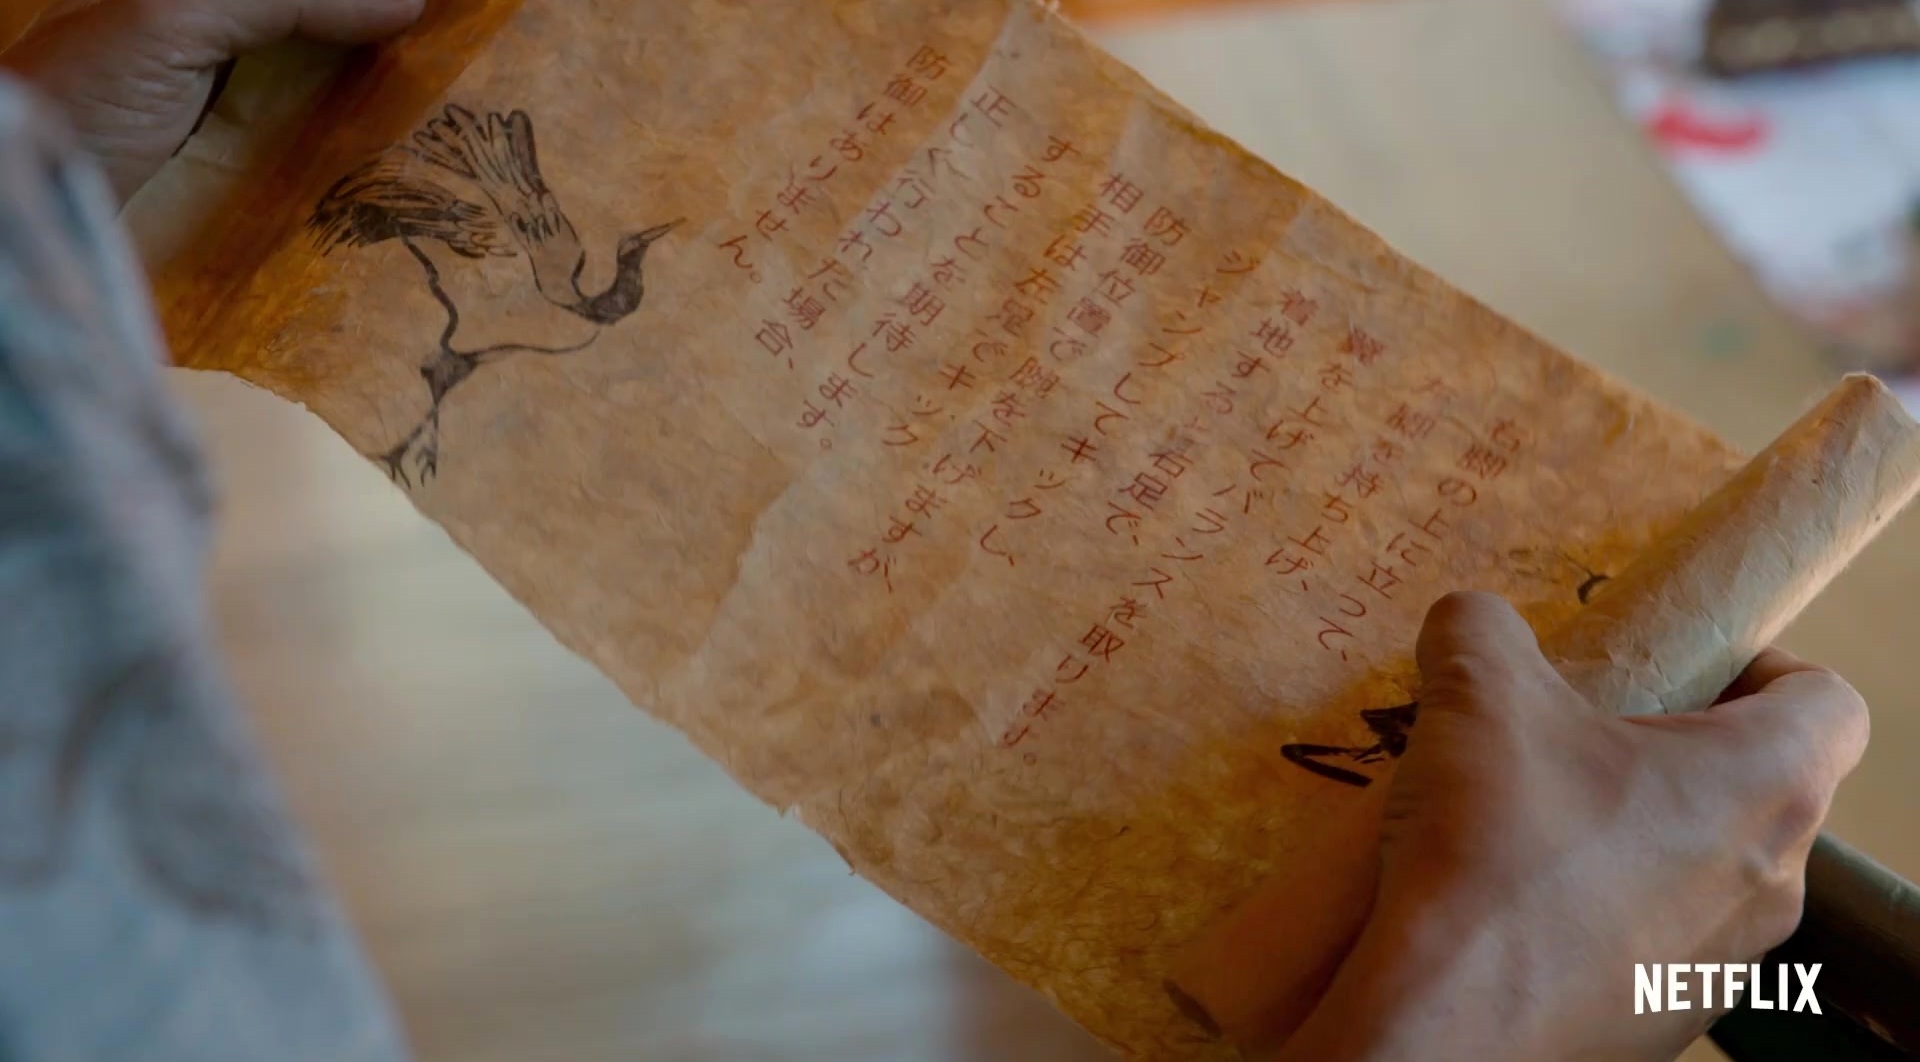 右脚の上に立って、
左脚を持ち上げ、
翼を上げてバランスを取ります。
着地すると右足で、
ジャンプしてキックし、
防御位置で腕を下げますが、
相手は左足でキック
することを期待します。
正しく行われた場合、
防御はありません。
NETFLIX